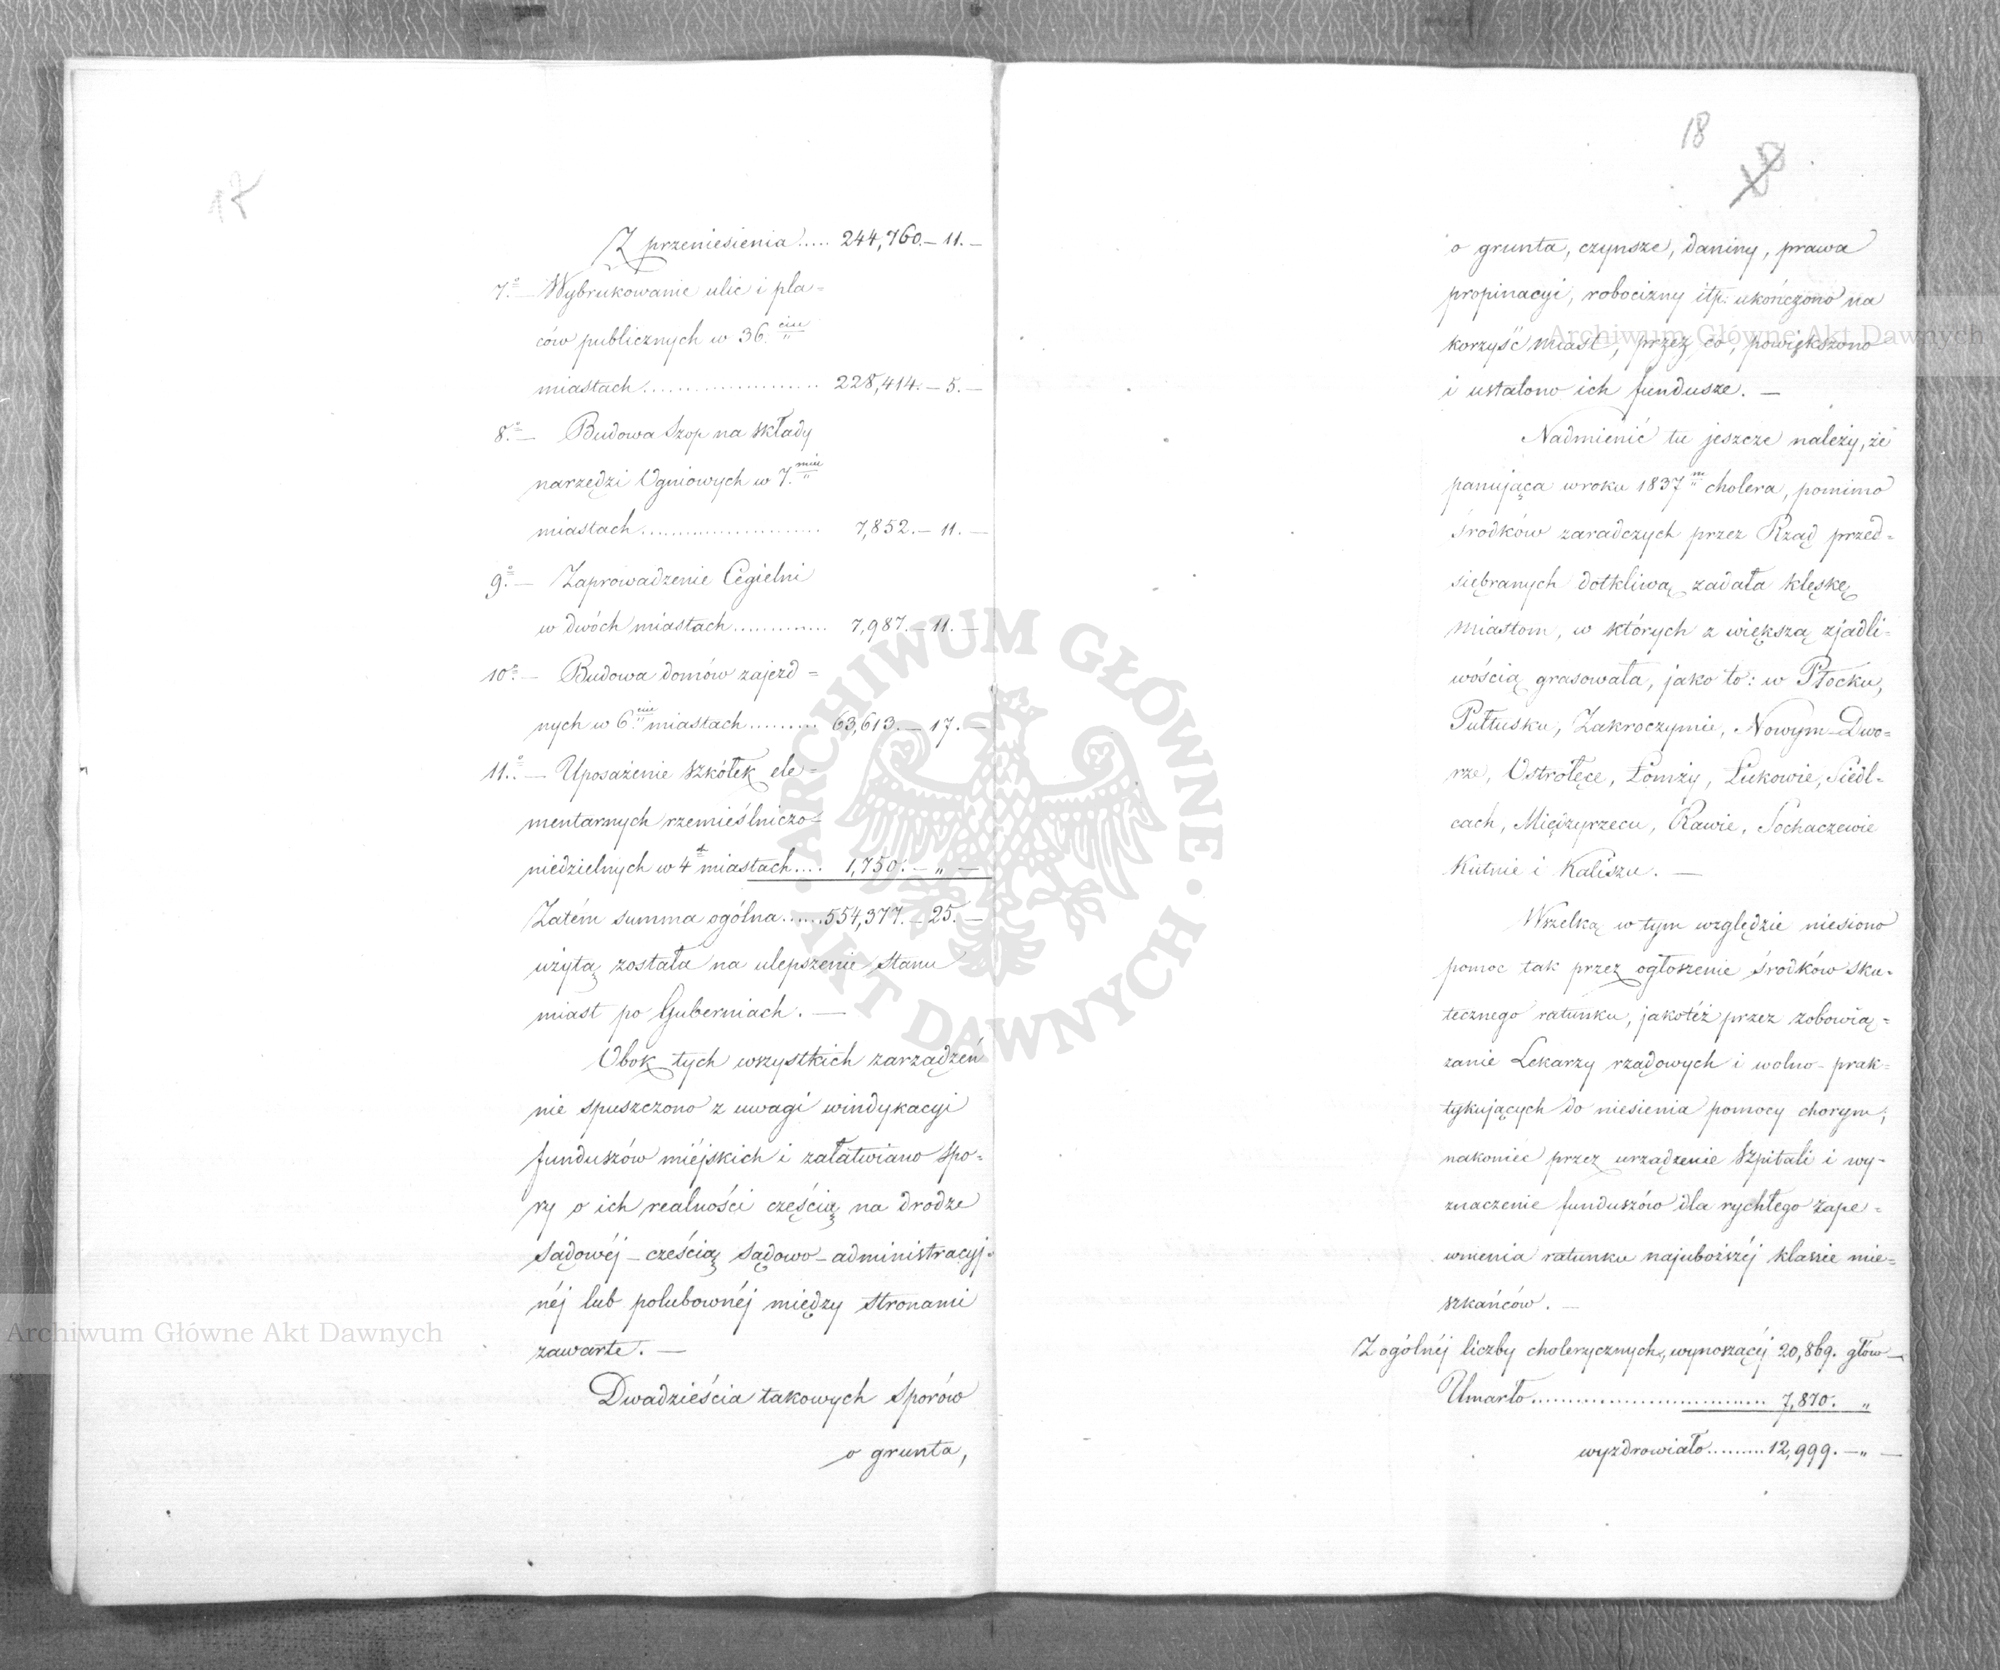 17
Z przeniesienia..... 244,760.–11.–
7.º – Wybrukowanie ulic i pla=
ców publicznych w 36.ciu
miastach.................... 228,414.–5.–
8.º – Budowa Szop na składy
narzędzi Ogniowych w 7.miu
miastach....................... 7,852.–11.–
9.º – Zaprowadzenie Cegielni
w dwóch miastach............ 7,987.–11.–
10.º – Budowa domów zajezd=
nych w 6.ciu miastach......... 63,613.–17.–
11.º – Uposażenie szkółek ele=
mentarnych rzemieślniczo-
niedzielnych w 4 miastach.... 1,750.– „ –
Zatém summa ogólna......554,377.–25.–
użytą została na ulepszenie stanu
miast po Guberniach. –
Obok tych wszystkich zarządzeń
nie spuszczono z uwagi windykacyi
funduszów miéjskich i załatwiano spo-
ry o ich realności częścią na drodze
sądowéj – częścią sądowo-administracyj=
néj lub polubownéj między stronami
zawarte. –
Dwadzieścia takowych sporów
o grunta,
18
o grunta, czynsze, daniny, prawa
propinacyi, robocizny itp. ukończono na
korzyść miast, przez co, powiększono
i ustalono ich fundusze. –
Nadmienić tu jeszcze należy, że
panująca w roku 1837m cholera, pomimo
środków zaradczych przez Rząd przed=
sięбranych dotkliwą zadała klęskę
miastom, w których z większą zjadli-
wością grasowała, jako to: w Płocku,
Pułtusku, Zakroczymie, Nowym-Dwo-
rze, Ostrołęce, Łomży, Łukowie, Siedl-
cach, Międzyrzecu, Rawie, Sochaczewie
Kutnie i Kaliszu. –
Wszelką w tym względzie niesiono
pomoc tak przez ogłoszenie środków sku-
tecznego ratunku, jakotéż przez zobowią=
zanie Lekarzy rządowych i wolno-prak=
tykujących do niesienia pomocy chorym;
nakoniec przez urządzenie Szpitali i wy-
znaczenie funduszów dla rychłego zape=
wnienia ratunku najuboższéj klassie mie=
szkańców. –
Z ogólnéj liczby cholerycznych, wynoszącéj 20,869. głów –
Umarło............................ 7,870. „
wyzdrowiało......... 12,999.–„–
Archiwum Główne Akt Dawnych
Archiwum Główne Akt Dawnych
ARCHIWUM GŁÓWNE
AKT DAWNYCH